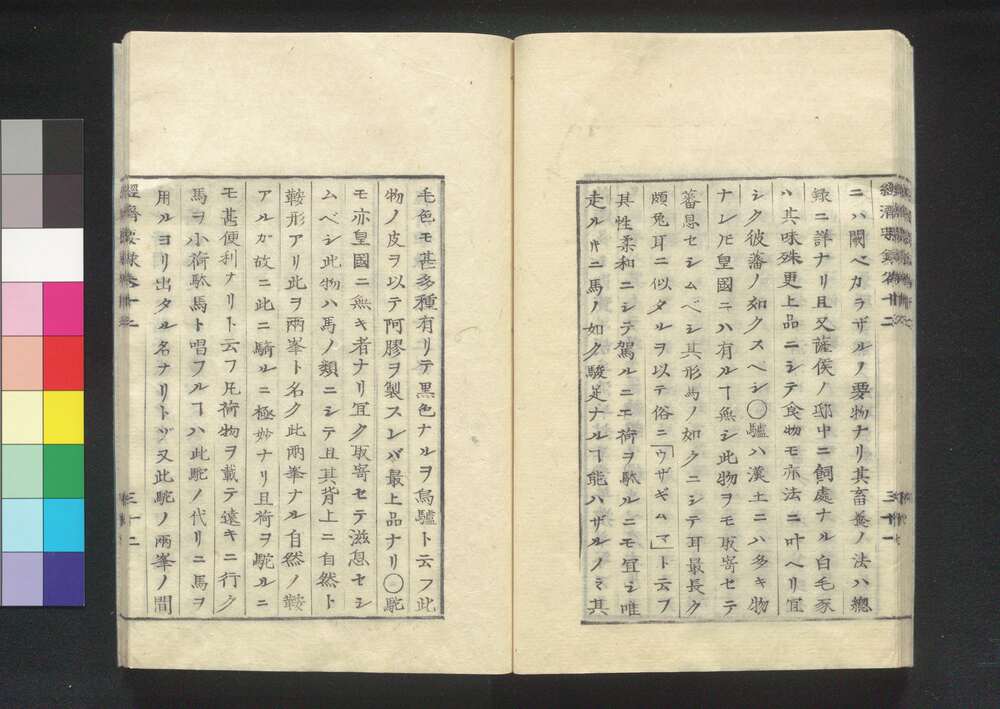 ニハ闕ベカラザルノ要物ナリ其畜養ノ法ハ總
録ニ詳ナリ且又薩侯ノ邸中ニ飼處ナル白毛豕
ハ其味殊更上品ニシテ食物モ亦法ニ叶ヘリ宜
シク彼藩ノ如クスベシ○驢ハ漢土ニハ多キ物
ナレ𪜈皇國ニハ有ルヿ無シ此物ヲモ取寄セテ
蕃息セシムベシ其形馬ノ如クニシテ耳最長ク
頗兎耳ニ似タルヲ以テ俗ニ「ウサギムマ」ト云フ
其性柔和ニシテ駕ルニエ荷ヲ駄ルニモ宜シ唯
走ルヿニ馬ノ如ク駿足ナルヿ能ハザルノミ其
毛色モ甚多種有リテ黒色ナルヲ烏驢ト云フ此
物ノ皮ヲ以テ阿膠ヲ製スレバ最上品ナリ○駝
モ亦皇國ニ無キ者ナリ宜ク取寄セテ滋息セシ
ムベシ此物ハ馬ノ類ニシテ且其背上ニ自然ト
鞍形アリ此ヲ兩峯ト名ク此兩峯ナル自然ノ鞍
アルガ故ニ此ニ騎ルニ極妙ナリ且荷ヲ駝ルニ
モ甚便利ナリト云フ凡荷物ヲ載テ遠キニ行ク
馬ヲ小荷駄馬ト唱フルヿハ此駝ノ代リニ馬ヲ
用ルヨリ出タル名ナリトゾ又此駝ノ兩峯ノ間